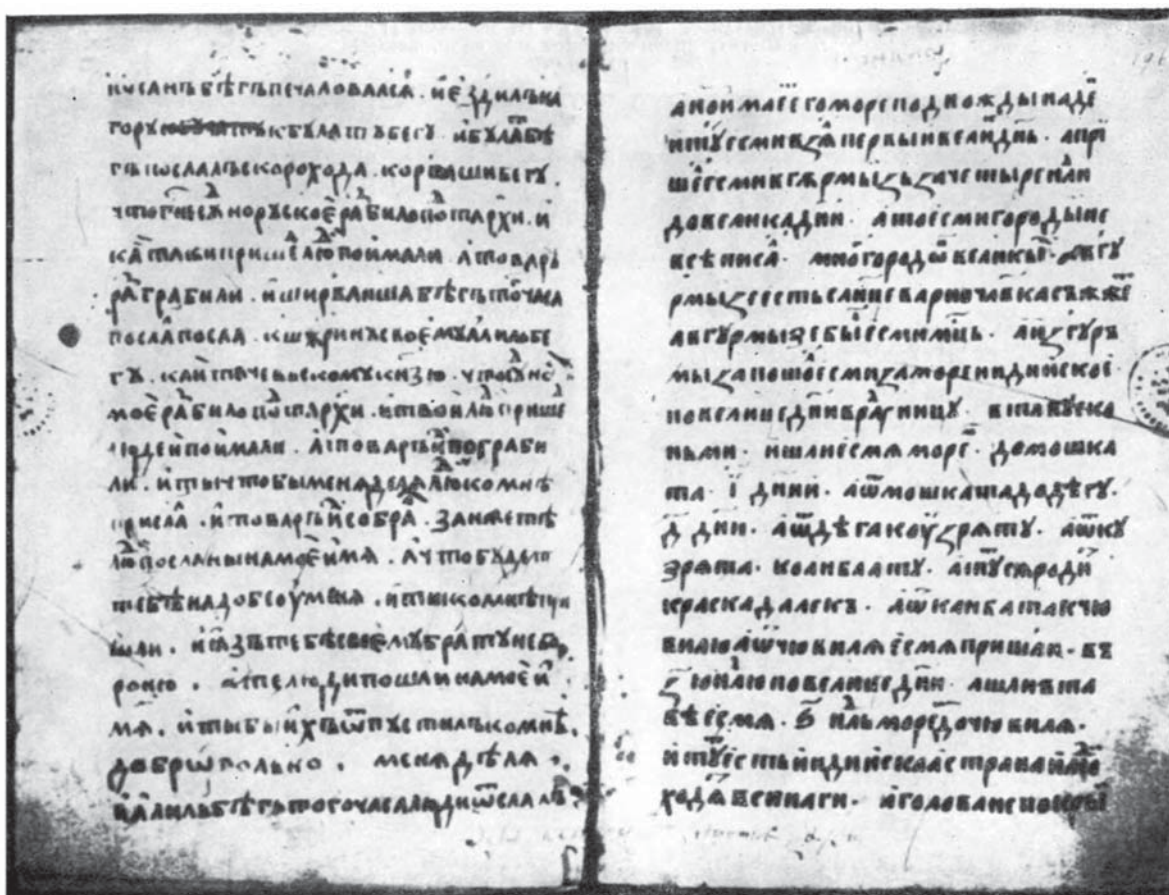 и ѹсанъ бѣгъ печаловалсѧ. и ездилъ на
горѹ к бѹлатъ бегѹ. и бѹлаⷮ бѣ
гъ послалъ скорохода. ко ширваши бегѹ.
что гн҃е сѹдно рѹское раⷥбило поⷣ тархи. и
каⷤтаки пришеⷣ люⷣ поимали. а товаръ
раⷥграбили. и ширваньша бѣгъ тоⷢ часа
послаⷧ посла. к шѹринѹ своемѹ алильбе
гѹ. каитачевьскомѹ кнѧзю. что сѹдно
мое раⷥбило поⷣ тархи. и твои люⷣ пришеⷣ
людеи поимали. а товаръ иⷯ пограби
ли. и ты чтобы менѧ делѧ люⷣ ко мнѣ
прислаⷧ. и товаръ иⷯ собраⷧ. занже тѣ
люⷣ посланы на мое имѧ. а что бѹдетъ
тебѣ надобе ѹ менѧ. и ты ко мнѣ при
шли. и ѧзъ тебѣ своемѹ братѹ не бо
роню. а те люди пошли на мое и
мѧ. и ты бы ихъ ѿпѹстилъ ко мнѣ.
доброволно. менѧ дѣлѧ.
и алильбѣгъ того часа люди ѿслалъ
а не оимает его море по дважды на де
и тѹ есми взѧⷧ первыи велиⷦ днь. а при
шеⷧ есми в гѹрмыз за четыре нⷣли
до велика дни. а то есми городы не
всѣ писаⷧ. много городоⷡ великыⷯ. а в гѹ
рмызе есть солнце варно члвка съжже
а в гѹрмызе быⷧ есми мцъ. а из гѹр
мыза пошоⷧ есми за море индииское
по велице дни в радѹницѹ. в тавѹ с ко
ньми. и шли есмѧ мореⷨ. до мошка
та. і҃ днии. а ѿ мошката до дѣгѹ.
д҃ дни. а ѿ дѣга кѹзрѧтѹ. а ѿ кѹ
зрѧта. конбаатѹ. а тѹ сѧ родиⷮ
краска да лекъ. а ѿ канбата к чю
вилю а ѿ чювилѧ есмѧ пришли. въ
з҃ю нⷣлю по велице дни. а шли в та
вѣ есмѧ. ѕ҃ нⷣль морем до чювилѧ.
и тѹ есть индиискаа страна и люⷣ
ходѧⷮ все наги. а голова не покрыⷮ